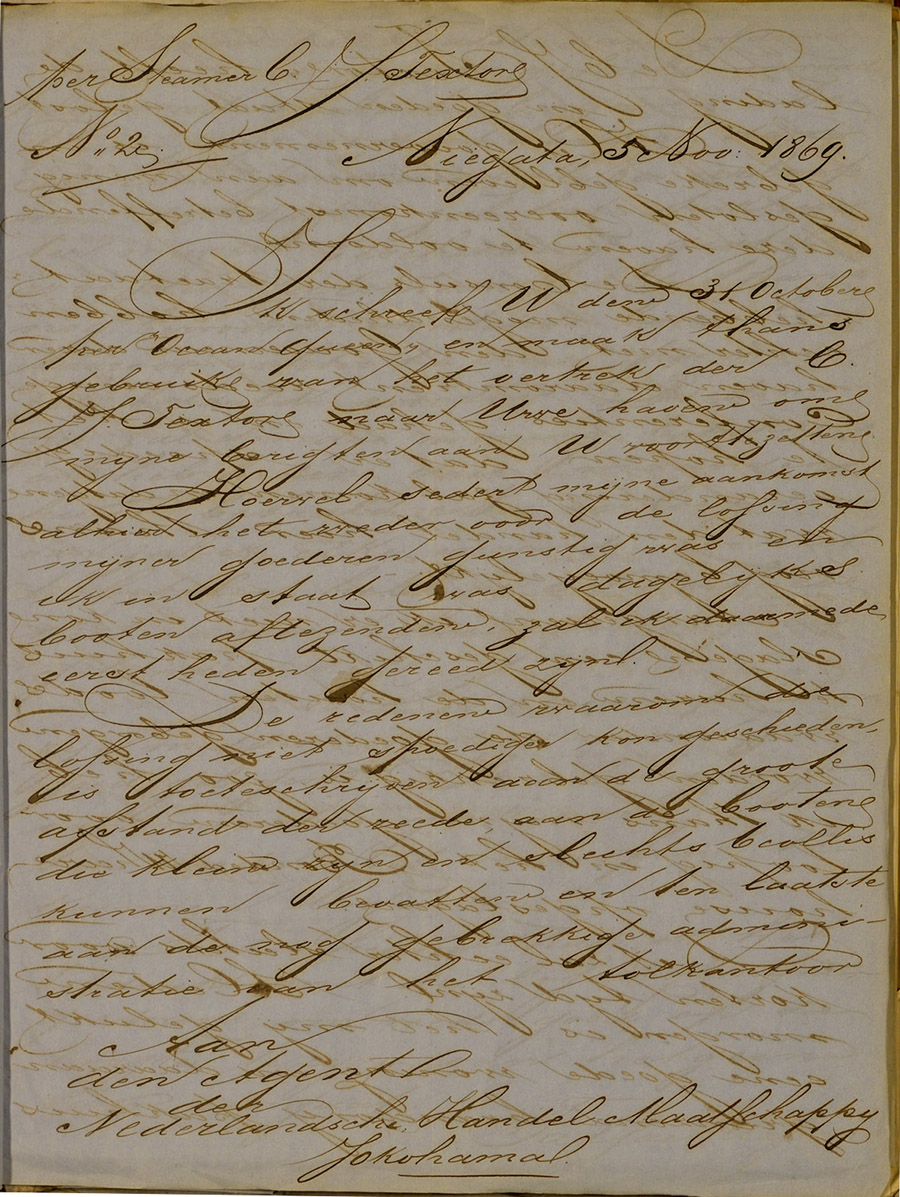 per Steamer C. J. Textor
No. 2.
Niegata, 5 Nov: 1869.
Ik schreef U den 31 October
per Ocean Queen, en maak thans
gebruik van het vertrek der C.
J. Textor naar Uwe haven om
mijne berigten aan U voorttezetten
Hoewel sedert mijne aankomst
alhier het weder voor de lossing
mijner goederen gunstig was en
ik in staat was dagelijks
booten aftezenden, zal ik daarmede
eerst heden gereed zijn.
De redenen waarom de
lossing niet spoediger kon geschieden,
is toeteschrijven aan de groote
afstand der reede, aan de booten
die klein zijn en slechts 6 collis
kunnen bevatten en ten laatste
aan de nog gebrekkige admini-
stratie van het tolkantoor
Aan
den Agent
der
Nederlandsche Handel Maatschappy
Jokohama.